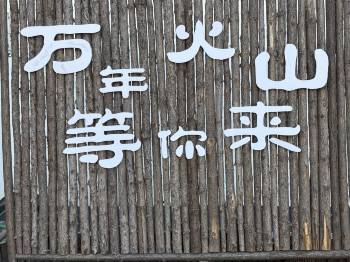 万年火山
等你来